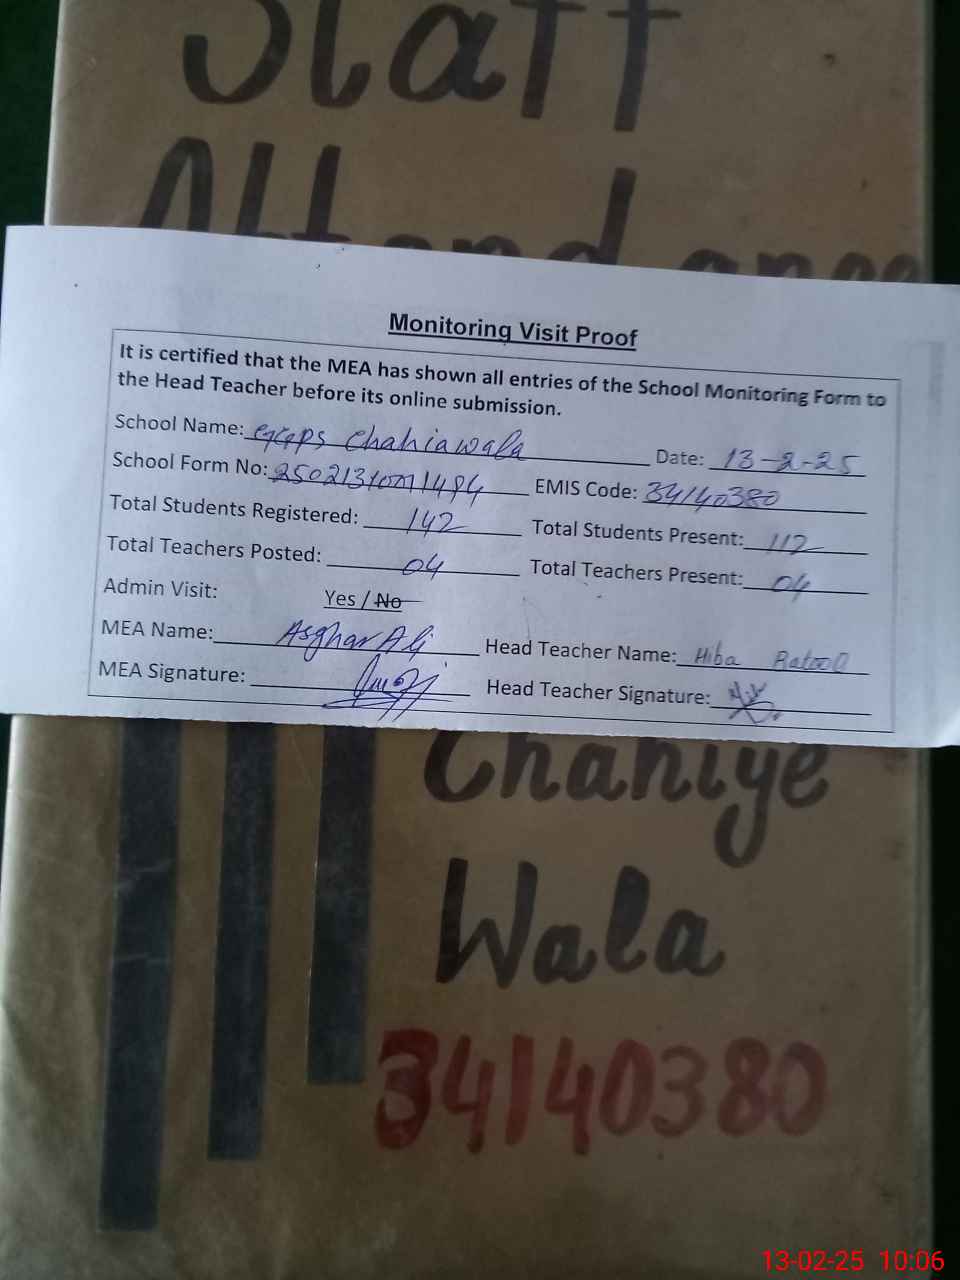 Staff
Attendance
Monitoring Visit Proof
It is certified that the MEA has shown all entries of the School Monitoring Form to
the Head Teacher before its online submission.
School Name: GGPS Chahiawala Date: 13-2-25
School Form No: EMIS Code: 34140380
Total Students Registered: 142 Total Students Present: 112
Total Teachers Posted: 04 Total Teachers Present: 04
Admin Visit: Yes / No
MEA Name: Asghar Ali Head Teacher Name: Hiba Batool
MEA Signature: Head Teacher Signature:
Chahiye
Wala
34140380
13-02-25 10:06